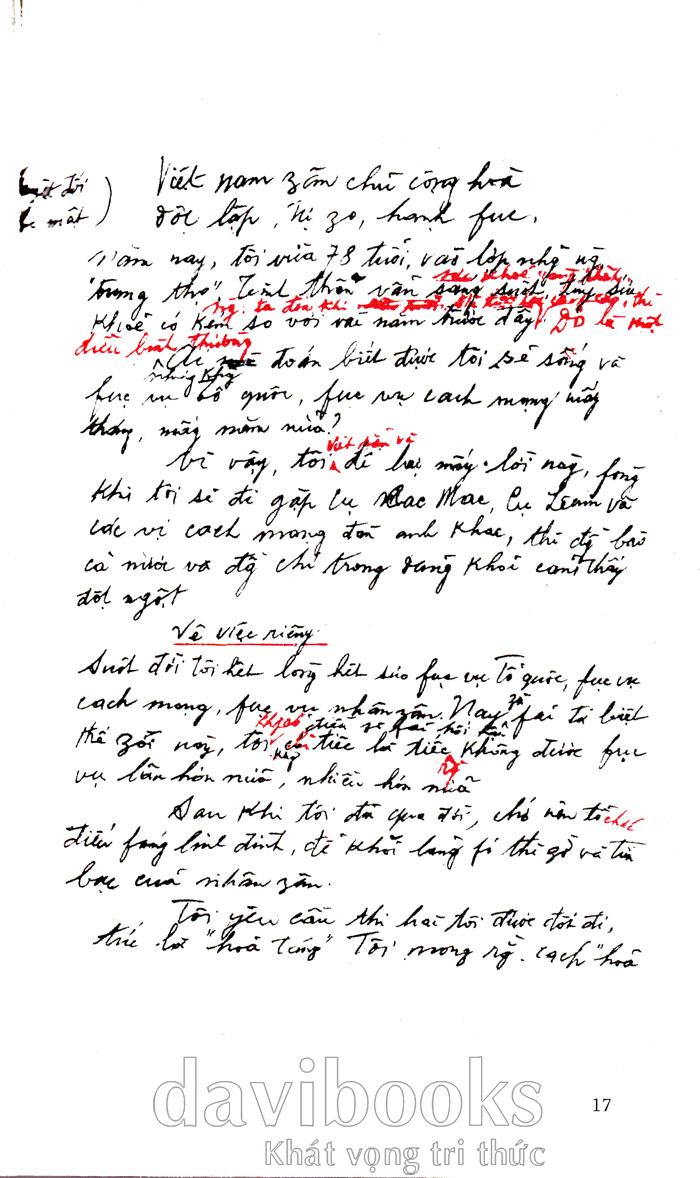 Tuyệt đối
bí mật
Việt nam zân chủ cộng hoà
Độc lập, tự zo, hạnh fúc.
Năm nay, tôi vừa 78 tuổi, vào lớp nhữ ng
"trung thọ" Tinh thần vẫn sáng suốt, thân thể
sức khoẻ
ng. ta đến khi
Khoẻ có kém so với vài năm trước đây. Đó là một
điều bình thường
Ai mà đoán biết được tôi sẽ sống và
Nhưng
fục vụ tổ quốc, fục vụ cách mạng mấy
tháng, mấy năm nữa?
Vì vậy, tôi để lại mấy lời này, fòng
viết sẵn và
khi tôi sẽ đi gặp cụ Các Mác, Cụ Lênin và
các vị cách mạng đàn anh khác, thì đg bào
cả nước và đg chí trong đảng khỏi cảm thấy
đột ngột
Về việc riêng
Suốt đời tôi hết lòng hết sức fục vụ Tổ quốc, fục vụ
cách mạng, fục vụ nhân zân. Nay zù fải từ biệt
không điều gì fải hối hận
thế zới này, tôi chỉ tiếc là tiếc không được fục
vụ lâu hơn nữa, nhiều hơn nữa
Sau khi tôi đã qua đời, chớ nên tổ chức
điếu fúng linh đình, để khỏi lãng fí thì zờ và tiền
bạc của nhân zân.
Tôi yêu cầu thi hài tôi được đốt đi,
tức là "hoả táng" Tôi mong rằ. cách "hoả
davibooks
Khát vọng tri thức
17